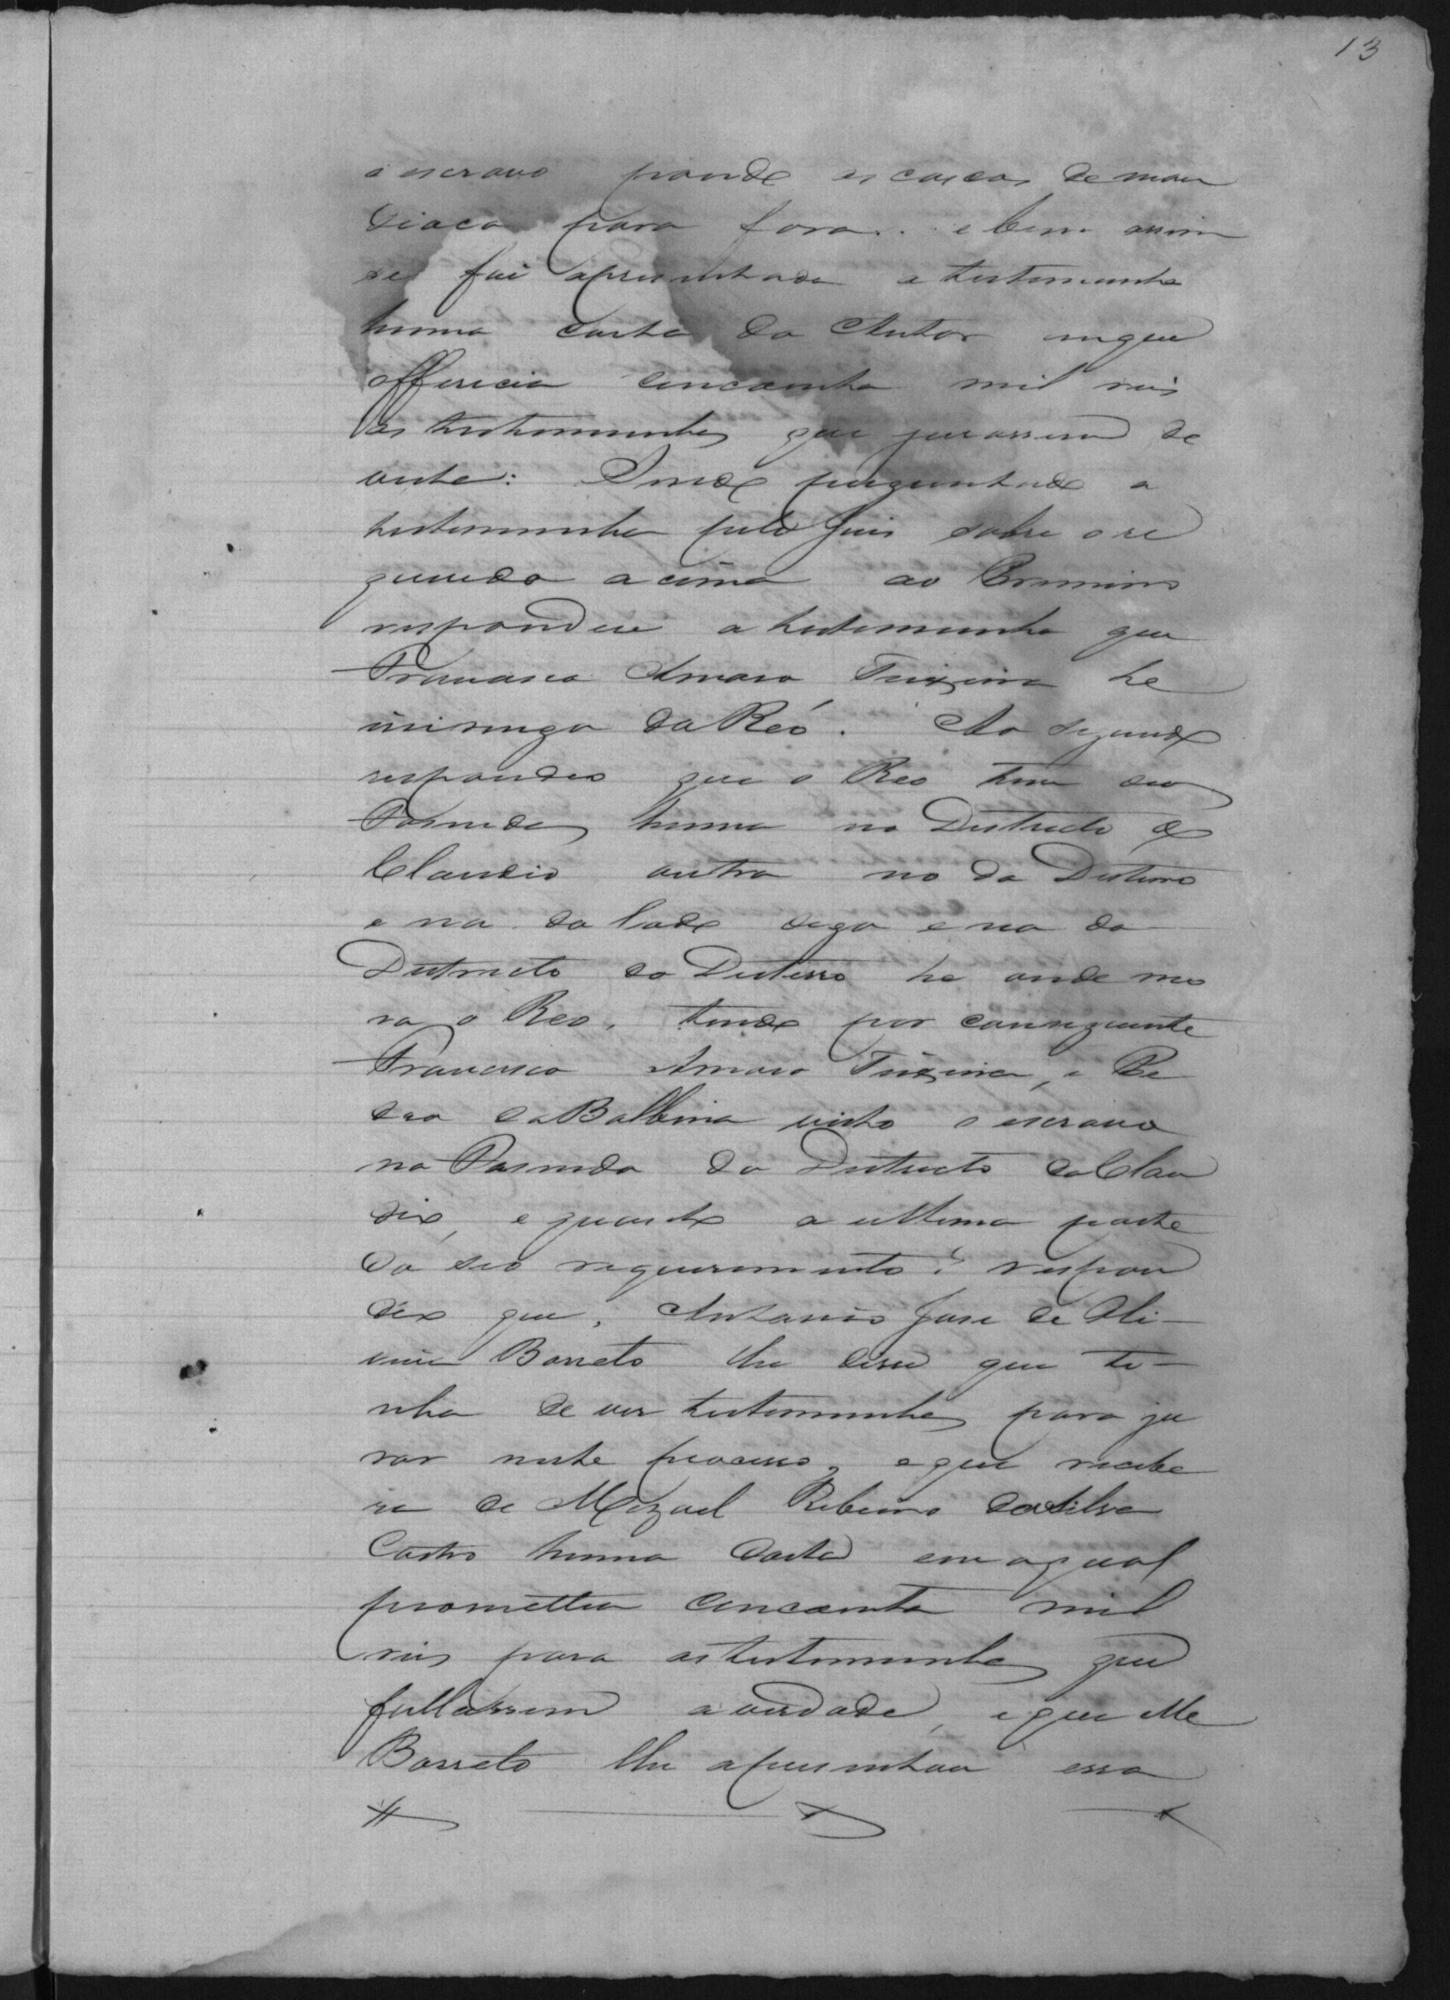 13
o escravo pondo as cascas de man
dioca para fora. e bem assim
se foi apresentada a testemunha
huma carta do Autor em que
offerecia cincoenta mil reis
as testemunhas que jurassem de
vista: Sendo perguntado a
testemunha pelo Juis sobre o re
querido acima ao Primeiro
respondeu a testemunha que
Francisco Amaro Teixeira he
inimigo do Reó. Ao segundo
respondeo que o Reo tem duas
Fasendas huma no Districto de
Claudio outra no do Desterro
e na do lado digo e na do
Districto do Desterro he onde mo
ra o Reo, tendo por conseguinte
Francisco Amaro Teixeira, e Pe
dro da Balbina visto o escravo
na Fasenda do Districto do Clau
dio, e quanto a ultima parte
do seo requerimento: respon
deo que, Antonio Jose de Oli-
veira Barreto lhe disse que ti-
nha de ver testemunhas para ju
rar neste processo, e que recebe
ra de Mizael Ribeiro da Silva
Castro huma Carta em a qual
promettia cincoenta mil
reis para as testemunhas que
fallassem a verdade, e que elle
Barreto lhe apresentou essa